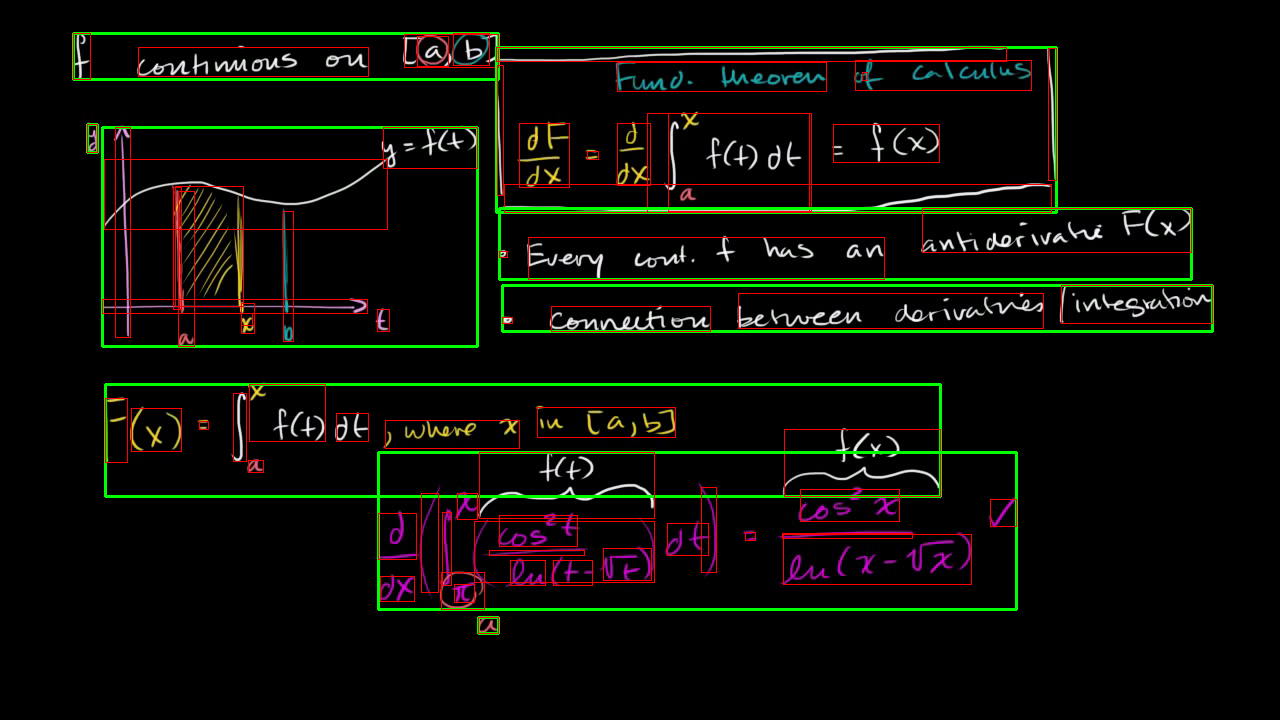 f continuous on [a, b]
Fund. theorem of calculus
dF/dx = d/dx ∫_a^x f(t) dt = f(x)
y = f(t)
a x b t
• Every cont. f has an antiderivative F(x)
• connection between derivatives / integration
F(x) = ∫_a^x f(t) dt, where x in [a, b]
f(t) f(x)
d/dx (∫_π^x (cos² t / ln(t - √t)) dt) = cos² x / ln(x - √x) ✓
a